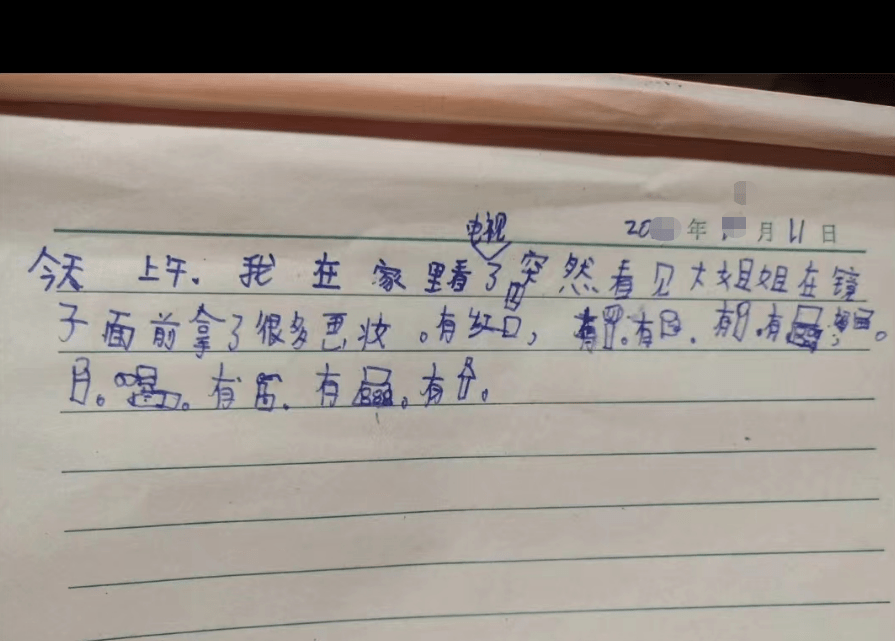 电视
20 年 月 11 日
今天 上午. 我 在 家 里看了突然看见大姐姐在镜
子面前拿了很多 妆。有红口, 有。有. 有.有。
。。有. 有。有。